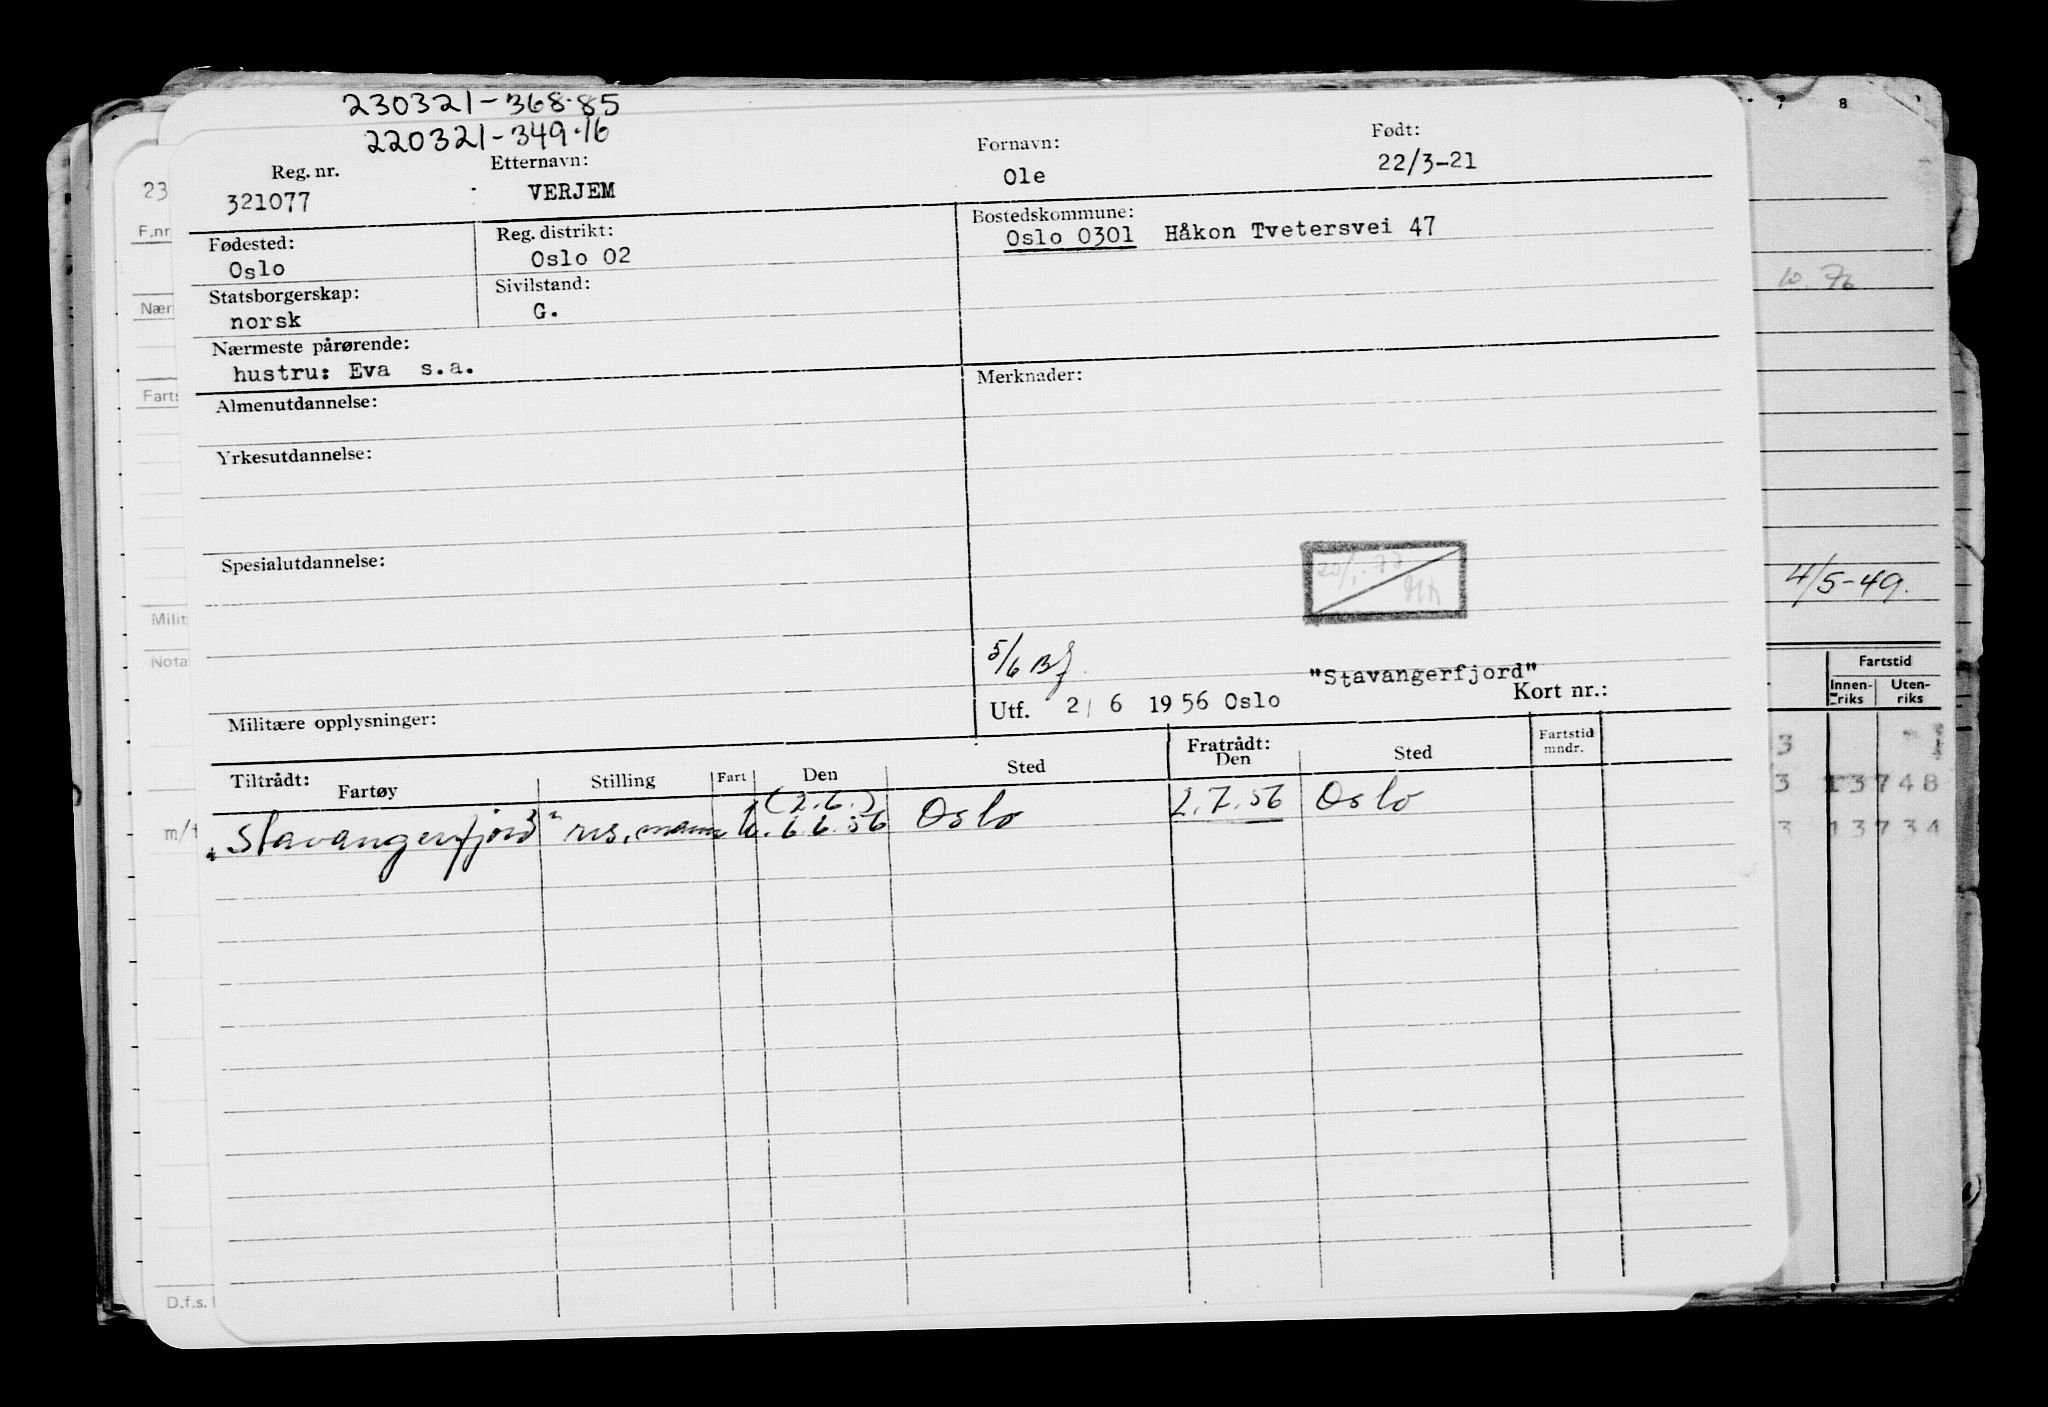 230321-368.85
220321-349.16
Reg. nr. Etternavn: Fornavn: Født:
321077 VERJEM Ole 22/3-21
Fødested: Reg. distrikt: Bostedskommune:
Oslo Oslo 02 Oslo 0301 Håkon Tvetersvei 47
Statsborgerskap: Sivilstand:
norsk G.
Nærmeste pårørende:
hustru: Eva s.a.
Almenutdannelse: Merknader:
Yrkesutdannelse:
Spesialutdannelse:
5/6
"Stavangerfjord"
Militære opplysninger: Utf. 2/ 6 1956 Oslo Kort nr.:
Tiltrådt: Fratrådt:
Fartøy Stilling Fart Den Sted Den Sted Fartstid mndr.
(2.6.)
"Stavangerfjord" res.mann 6.6.56 Oslo 2.7.56 Oslo
23
F.nr
Nær
Farts
Milit
Nota
m/t
D.f.s.
7 8
4/5-49.
Fartstid
Innen-riks Uten-riks
3
3 13748
3 13734